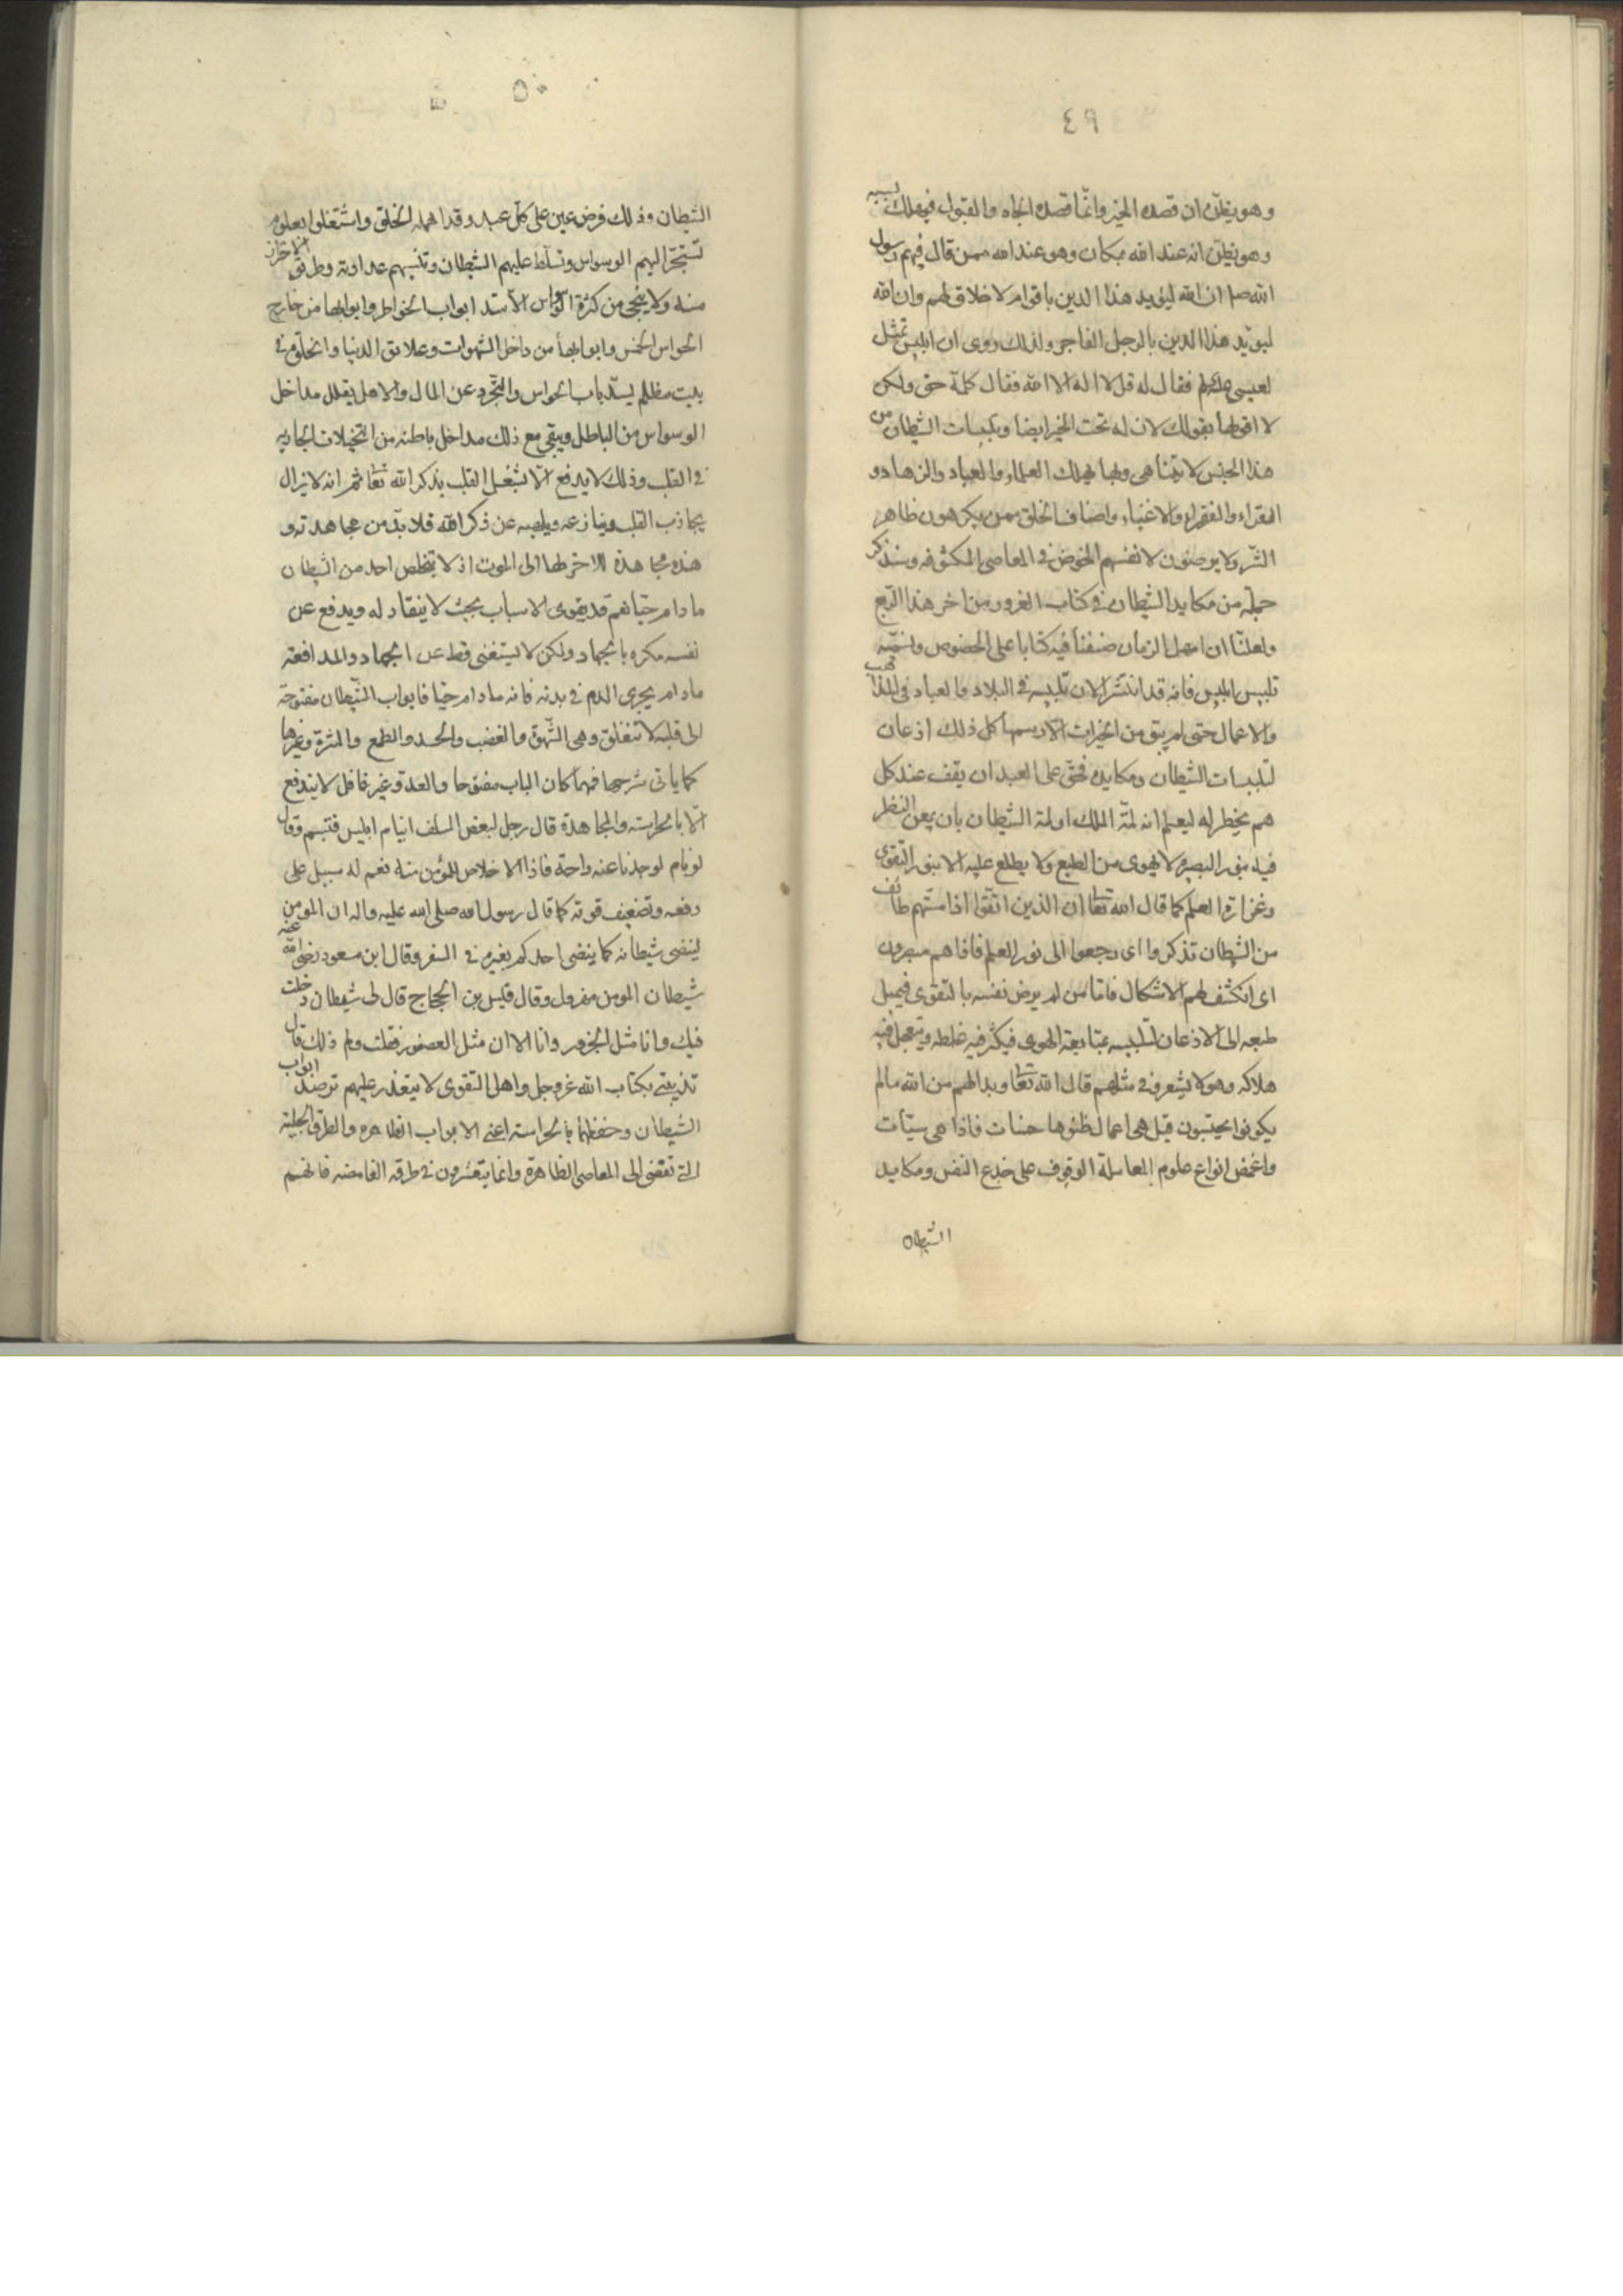 ٤٩
وهو يظن ان قصده الخير وانما قصده الجاه والقبول فيهلك بسببه
وهو يظن انه عند الله بمكان وهو عند الله ممن قال فيهم رسول
الله صلم ان الله ليؤيد هذا الدين باقوام لا خلاق لهم وان الله
ليؤيد هذا الدين بالرجل الفاجر ولذلك روى ان ابليس تمثل
لعيسى فقال له قل لا اله الا الله فقال كلمة حق ولكن
لا اقولها بقولك لان له تحت الخير ايضا وتلبيسات الشيطان من
هذا الجنس لا تتناهى وبها يهلك العلماء والعباد والزهاد و
الفقراء والاغنياء واصناف الخلق ممن يكرهون ظاهر
الشر ولا يرضون لانفسهم الخوض في المعاصي المكشوفه وسنذكر
جملة من مكايد الشيطان في كتاب الغرور من اخر هذا الربع
ولعلنا ان امهل الزمان صنفنا فيه كتابا على الخصوص ونسميه
تلبيس ابليس فانه قد انتشر الان تلبيسه في البلاد والعباد في المذاهب
والاعمال حتى لم يبق من الخيرات الا رسمها كل ذلك اذعان
لتلبيسات الشيطان ومكايده فحق على العبد ان يقف عند كل
هم يخطر له ليعلم انه لمة الملك او لمة الشيطان بان يمعن النظر
فيه بنور البصيره لا بهوى من الطبع ولا يطلع عليه الا بنور التقوى
وغزارة العلم كما قال الله تعا ان الذين اتقوا اذا مستهم طائف
من الشيطان تذكروا اى رجعوا الى نور العلم فاذا هم مبصرون
اى انكشف لهم الاشكال فاما من لم يرض نفسه بالتقوى فيميل
طبعه الى الاذعان لتلبيسه بمتابعة الهوى فيكثر فيه غلطه ويتعجل فيه
هلاكه وهو لا يشعر وفي مثلهم قال الله تعا وبدا لهم من الله ما لم
يكونوا يحتسبون قيل هى اعمال ظنوها حسنات فاذا هى سيئات
واغمض انواع علوم المعاملة الوقوف على خدع النفس ومكايد
الشيطان
٥٠
الشيطان وذلك فرض عين على كل عبد وقد اهمله الخلق واشتغلوا بعلوم
تستجر اليهم الوسواس وتسلط عليهم الشيطان وتنسيهم عداوته وطريق الاحتراز
منه ولا ينجى من كثرة الوسواس الا سد ابواب الخواطر وابوابها من خارج
الحواس الخمس وابوابها من داخل الشهوات وعلائق الدنيا والخلوة في
بيت مظلم يسد باب الحواس والتجرد عن المال والاهل يقلل مداخل
الوسواس من الباطل ويبقى مع ذلك مداخل باطنه من التخيلات الجاريه
في القلب وذلك لا يدفع الا بشغل القلب بذكر الله تعا ثم انه لا يزال
يجاذب القلب وينازعه ويلهيه عن ذكر الله فلا بد من مجاهدته و
هذه مجاهدة لا اخر لها الى الموت اذ لا يتخلص احد من الشيطان
ما دام حيا نعم قد يقوى لاسباب بحيث لا ينقاد له ويدفع عن
نفسه مكره بالجهاد ولكن لا يستغنى قط عن الجهاد والمدافعة
ما دام يجرى الدم في بدنه فانه ما دام حيا فابواب الشيطان مفتوحة
الى قلبه لا تنغلق وهى الشهوة والغضب والحسد والطمع والشره وغيرها
كما ياتى شرحها فمهما كان الباب مفتوحا والعدو غير غافل لا يندفع
الا بالحراسة والمجاهدة قال رجل لبعض السلف اينام ابليس فتبسم وقال
لو نام لوجدنا عنه راحة فاذا لا خلاص للمؤمن منه نعم له سبيل على
دفعه وتضعيف قوته كما قال رسول الله صلى الله عليه واله ان المومن
لينضى شيطانه كما ينضى احدكم بعيره في السفر وقال ابن مسعود رضى الله عنه
شيطان المومن مهزول وقال قيس بن الحجاج قال لى شيطان دخلت
فيك وانا مثل الجزور وانا الان مثل العصفور فقلت ولم ذلك قال
تذيبنى بكتاب الله عز وجل واهل التقوى لا يتعذر عليهم ترصد ابواب
الشيطان وحفظها بالحراسة اعنى الابواب الظاهره والطرق الجلية
التى تفضى الى المعاصى الظاهرة وانما يتعثرون في طرقه الغامضه فانهم